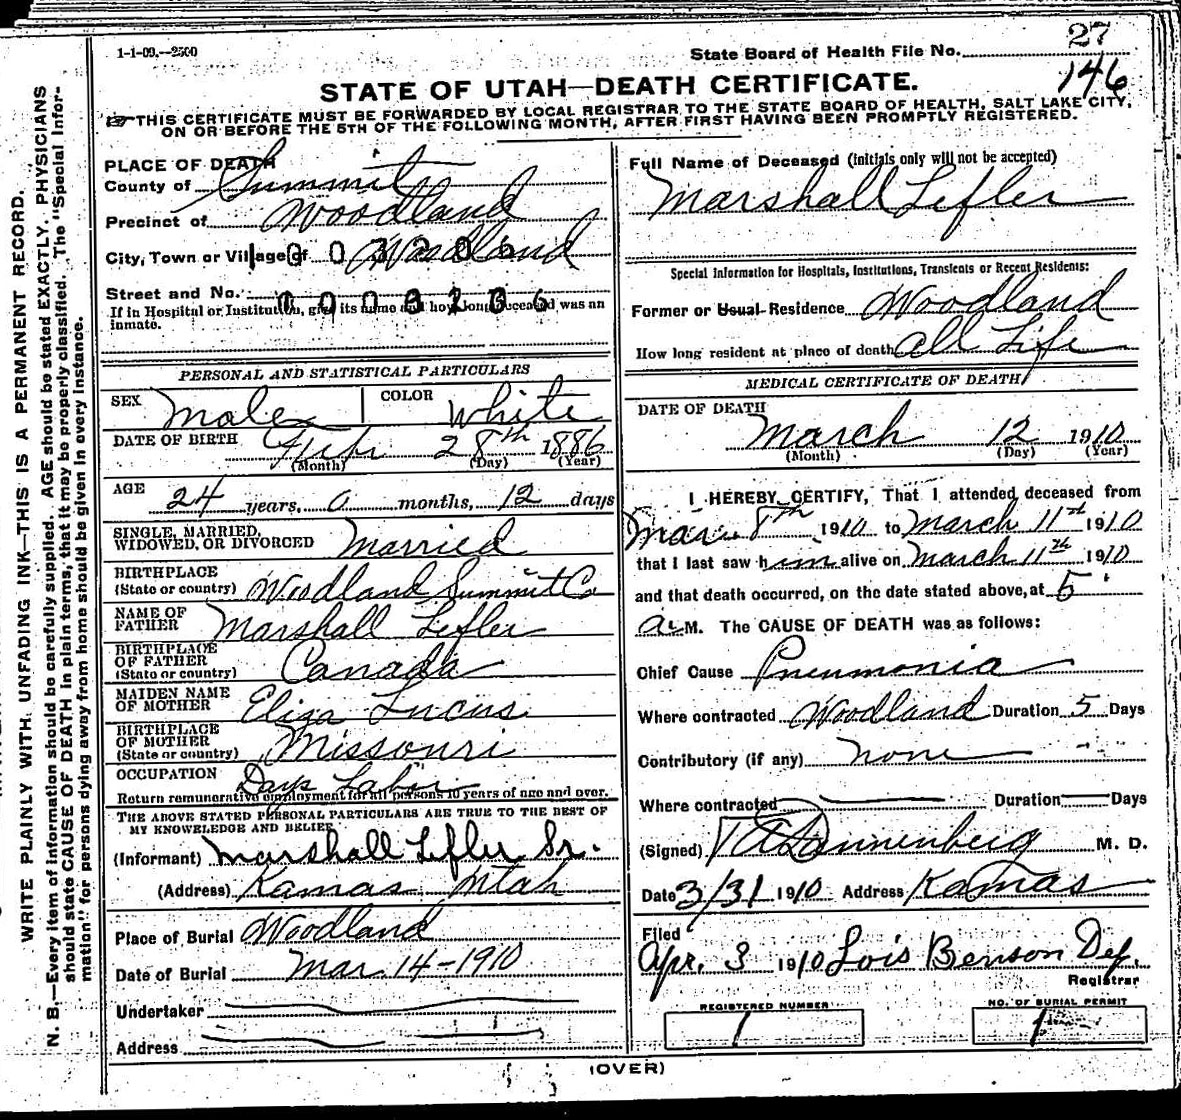 1-1-09.--2500
State Board of Health File No. 27
146
STATE OF UTAH—DEATH CERTIFICATE.
THIS CERTIFICATE MUST BE FORWARDED BY LOCAL REGISTRAR TO THE STATE BOARD OF HEALTH, SALT LAKE CITY,
ON OR BEFORE THE 5TH OF THE FOLLOWING MONTH, AFTER FIRST HAVING BEEN PROMPTLY REGISTERED.
WRITE PLAINLY WITH UNFADING INK—THIS IS A PERMANENT RECORD.
N. B.—Every item of information should be carefully supplied. AGE should be stated EXACTLY. PHYSICIANS
should state CAUSE OF DEATH in plain terms, that it may be properly classified. The "Special Infor-
mation" for persons dying away from home should be given in every instance.
PLACE OF DEATH
County of Summit
Precinct of Woodland
City, Town or Village of Woodland
Street and No.
If in Hospital or Institution, give its name and how long deceased was an
inmate.
PERSONAL AND STATISTICAL PARTICULARS
SEX Male COLOR White
DATE OF BIRTH Feb 28th 1886
(Month) (Day) (Year)
AGE 24 years, 0 months, 12 days
SINGLE, MARRIED,
WIDOWED, OR DIVORCED Married
BIRTHPLACE
(State or country) Woodland Summit Co
NAME OF
FATHER Marshall Lefler
BIRTHPLACE
OF FATHER
(State or country) Canada
MAIDEN NAME
OF MOTHER Eliza Lucus
BIRTHPLACE
OF MOTHER
(State or country) Missouri
OCCUPATION Days Labor
Return remunerative employment for all persons 10 years of age and over.
THE ABOVE STATED PERSONAL PARTICULARS ARE TRUE TO THE BEST OF
MY KNOWELEDGE AND BELIEF
(Informant) Marshall Lefler Sr.
(Address) Kamas Utah
Place of Burial Woodland
Date of Burial Mar. 14-1910
Undertaker
Address
Full Name of Deceased (initials only will not be accepted)
Marshall Lefler
Special Information for Hospitals, Institutions, Transients or Recent Residents:
Former or Usual Residence Woodland
How long resident at place of death All Life
MEDICAL CERTIFICATE OF DEATH
DATE OF DEATH
March 12 1910
(Month) (Day) (Year)
I HEREBY CERTIFY, That I attended deceased from
Mar. 8th 1910 to March 11th 1910
that I last saw him alive on March 11th 1910
and that death occurred, on the date stated above, at 5
a M. The CAUSE OF DEATH was as follows:
Chief Cause Pneumonia
Where contracted Woodland Duration 5 Days
Contributory (if any) none
Where contracted Duration Days
(Signed) Dannenberg M. D.
Date 3/31 1910 Address Kamas
Filed
Apr. 3 1910 Lois Benson Dep.
Registrar
REGISTERED NUMBER
1
NO. OF BURIAL PERMIT
1
(OVER)